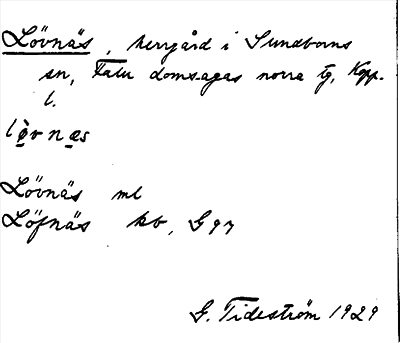 Lövnäs, herrgård i Sundborns
sn, Falu domsagas norra tg, Kopp.
l.
lövnæs
Lövnäs ml
Löfnäs kb, G 97
G. Tideström 1929